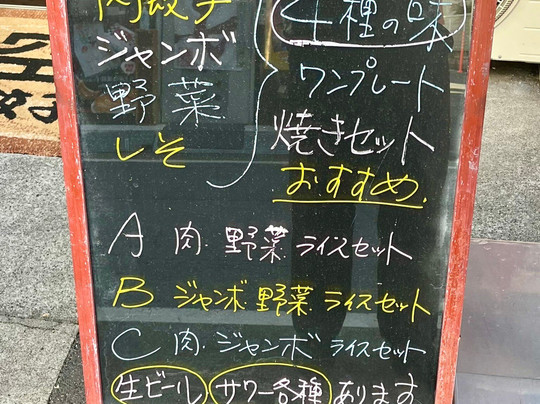 肉餃子
ジャンボ
野菜
しそ
4種の味
ワンプレート
焼きセット
おすすめ
A 肉・野菜 ライスセット
B ジャンボ 野菜 ライスセット
C 肉・ジャンボ ライスセット
生ビール サワー各種 あります